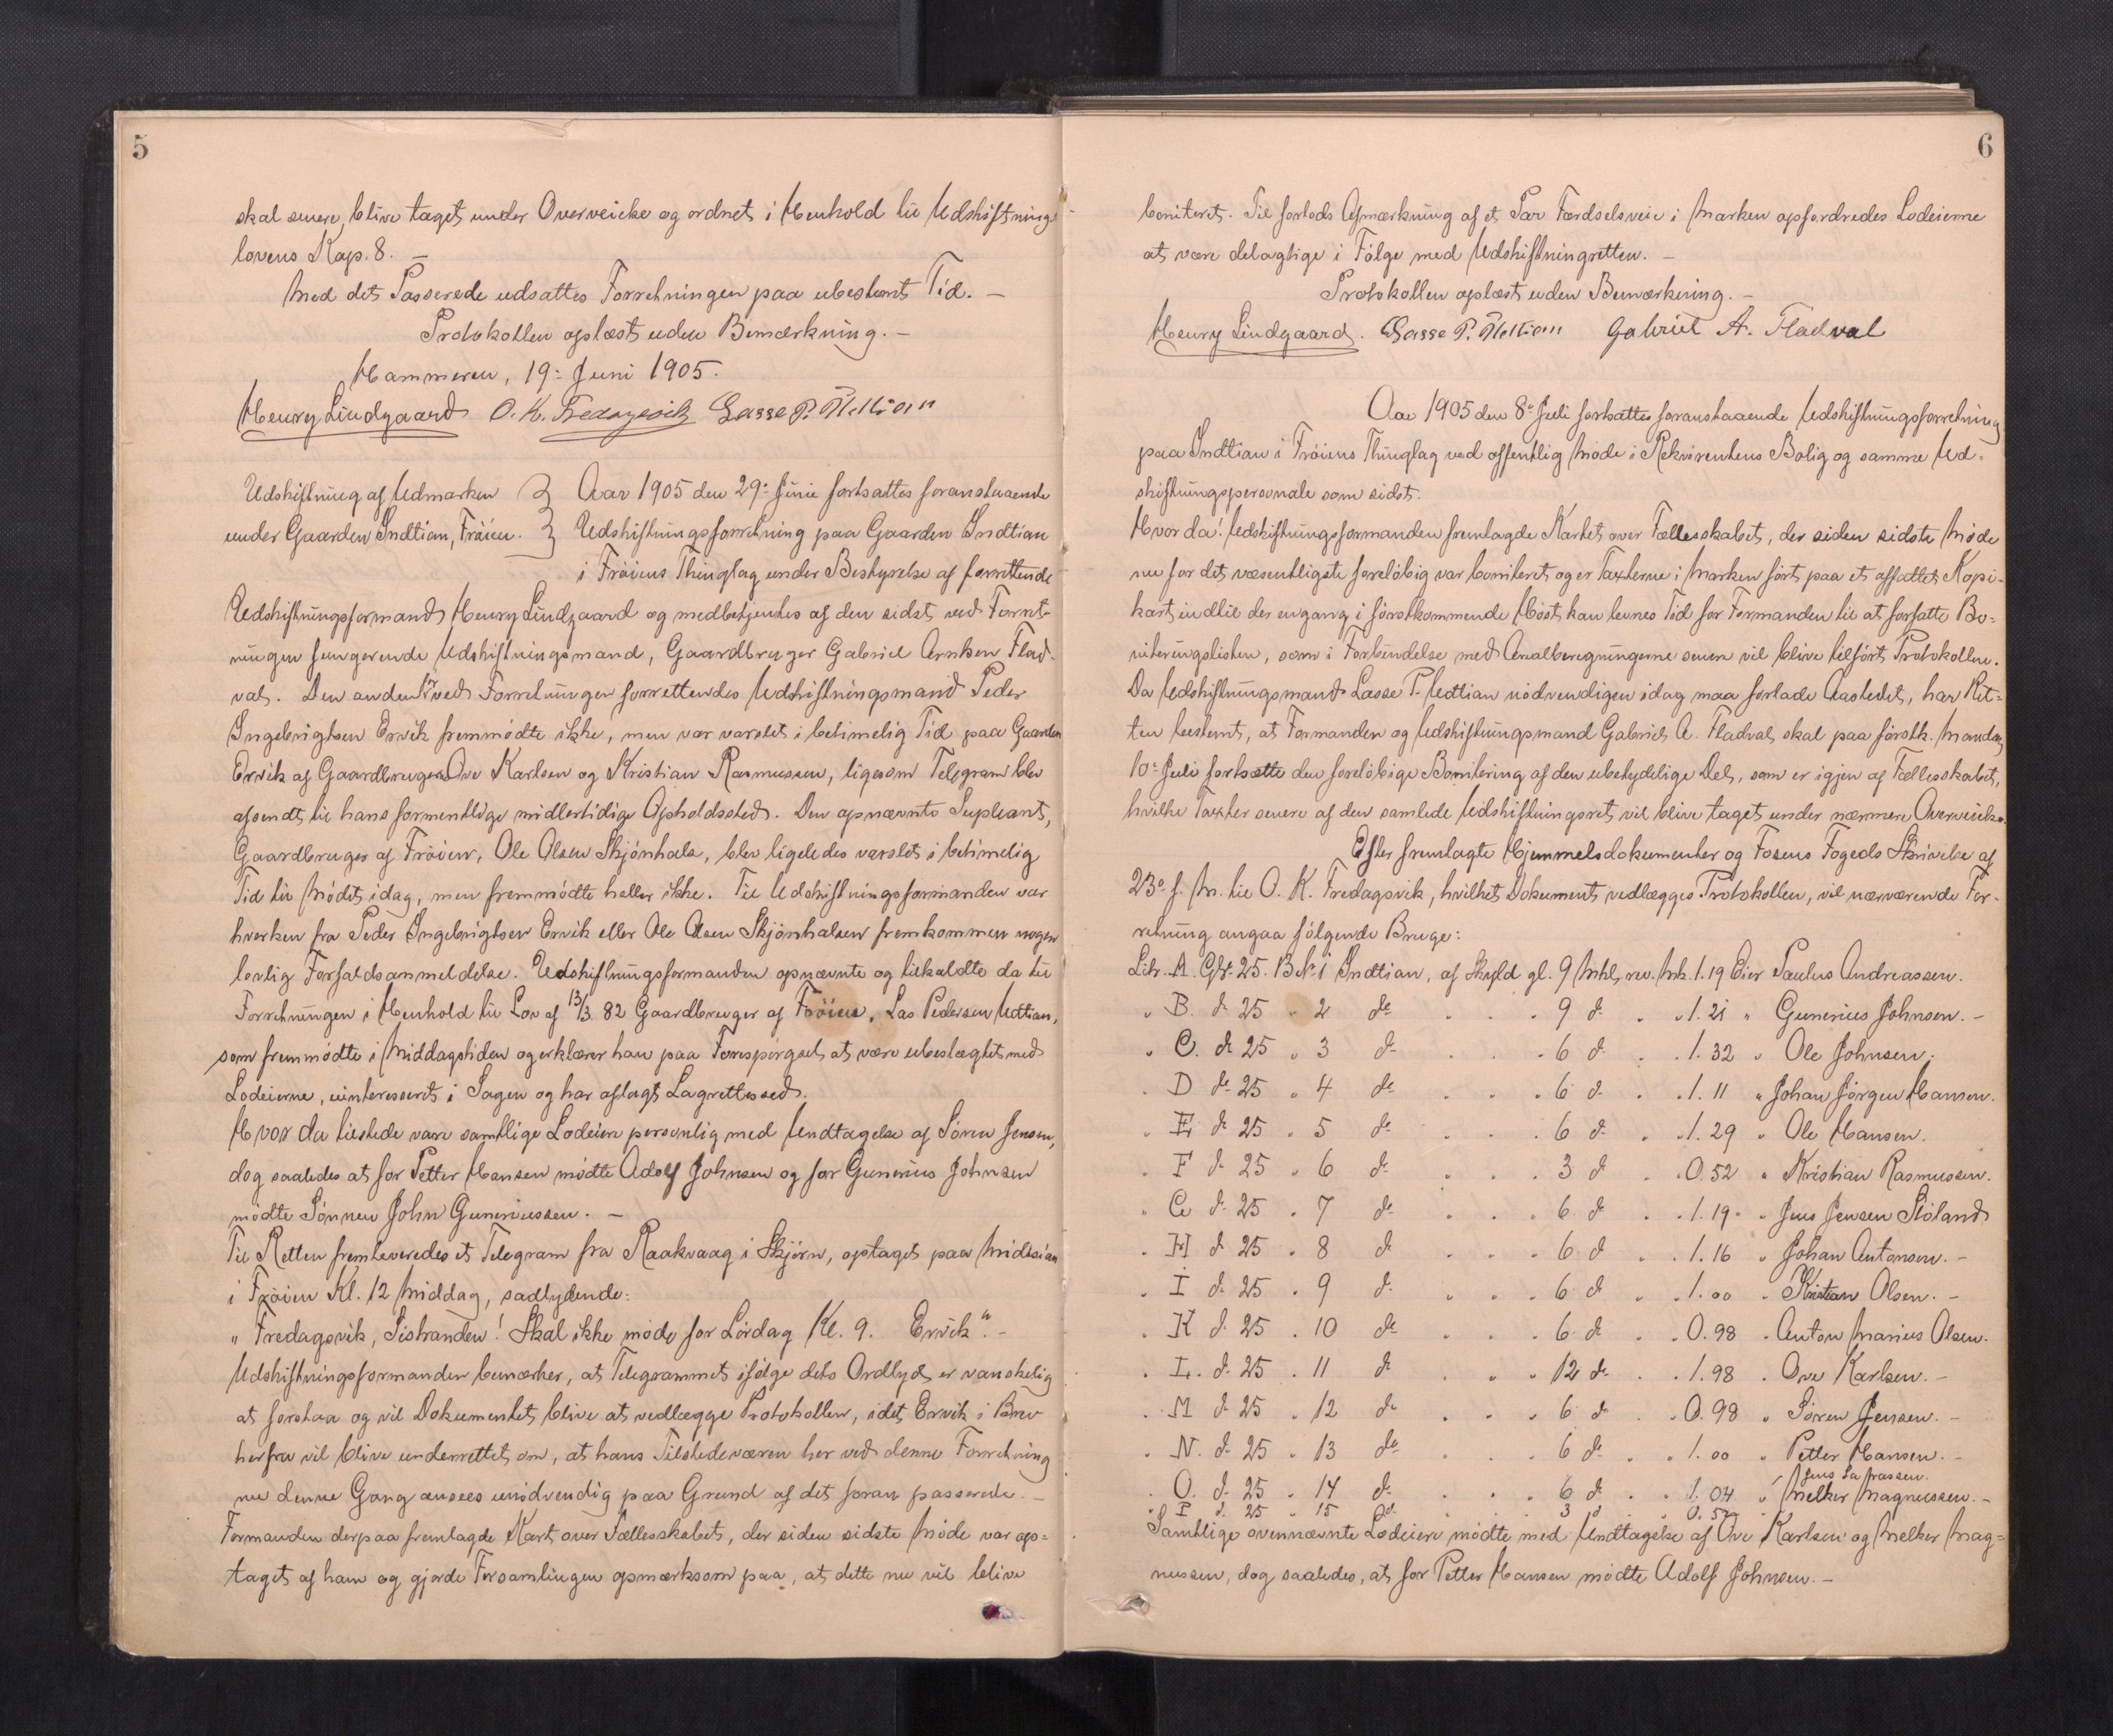 5
skal senere blive taget under Overveielse og ordnet i Henhold til Udskiftnings
lovens Kap. 8. —
Med det Passerede udsattes Forretningen paa ubestemt Tid. —
Protokollen oplæst uden Bemærkning. —
Hammeren, 19: Juni 1905.
Henry Lindgaard O. K. Fredagsvik Lasse P. Uttian
Udskiftning af Udmarken
under Gaarden Indtian, Fröien.
Aar 1905 den 29: Juni fortsattes foranstaaende
Udskiftningsforretning paa Gaarden Indtian
i Fröiens Thinglag under Bestyrelse af forrettende
Udskiftningsformand Henry Lindgaard og medbetjentes af den sidst ved Forret-
ningen fungerende Udskiftningsmand, Gaardbruger Gabriel Arntsen Flad-
val. Den anden ved Forretningen forrettendes Udskiftningsmand Peder
Ingebrigtsen Ervik fremmödte ikke, men var varslet i betimelig Tid paa Gaarden
Ervik af Gaardbrugere Ove Karlsen og Kristian Rasmussen, ligesom Telegram blev
afsendt til hans formentlige midlertidige Opholdssted. Den opnævnte Supleant,
Gaardbruger af Fröien, Ole Olsen Skjönhals, blev ligeledes varslet i betimelig
Tid til Mödet idag, men fremmödte heller ikke. Til Udskiftningsformanden var
hverken fra Peder Ingebrigtsen Ervik eller Ole Olsen Skjönhalsen fremkommen nogen
lovlig Forfaldsanmeldelse. Udskiftningsformanden opnævnte og tilkaldte da til
Forretningen i Henhold til Lov af 13/3 82 Gaardbruger af Fröien, Las Pedersen Uttian,
som fremmödte i Middagstiden og erklærer han paa Forespörgsel at være ubeslægtet med
Lodeierne, uinteresseret i Sagen og har aflagt Lagrettesed.
Hvor da tilstede vare samtlige Lodeiere personlig med Undtagelse af Sören Jensen,
dog saaledes at for Petter Hansen mödte Adolf Johnsen og for Gunerius Johnsen
mödte Sönnen John Guneriussen. —
Til Retten fremleveredes et Telegram fra Raakvaag i Skjörn, optaget paa Midtsian
i Fröien Kl. 12 Middag, saalydende:
„Fredagsvik, Sistranden! Skal ikke möde for Lördag Kl. 9. Ervik“. —
Udskiftningsformanden bemærker, at Telegrammet ifölge dets Ordlyd er vanskelig
at forstaa og vil Dokumentet blive at vedlægge Protokollen, idet Ervik i Brev
herfra vil blive underrettet om, at hans Tilstedeværen her ved denne Forretning
nu denne Gang ansees unödvendig paa Grund af det foran passerede. —
Formanden derpaa fremlagde Kart over Fællesskabet, der siden sidste Möde var op-
taget af ham og gjorde Forsamlingen opmærksom paa, at dette nu vil blive
6
boniteret. Til forlods Afmærkning af et Par Færdselsveie i Marken opfordredes Lodeierne
at være delagtige i Fölge med Udskiftningsretten. —
Protokollen oplæst uden Bemærkning. —
Henry Lindgaard. Lasse P. Uttian Gabriel A. Fladval
Aar 1905 den 8: Juli fortsattes foranstaaende Udskiftningsforretning
paa Indtian i Fröiens Thinglag ved offentlig Möde i Rekvirentens Bolig og samme Ud-
skiftningspersonale som sidst.
Hvor da! Udskiftningsformanden fremlagde Kartet over Fællesskabet, der siden sidste Möde
nu for det væsentligste foreløbig var boniteret og er Taxterne i Marken fört paa et affattet Kopi-
kart, indtil der engang i förstkommende Höst kan levnes Tid for Formanden til at forfatte Bo-
niteringslisten, som i Forbindelse med Arealberegningerne senere vil blive tilfört Protokollen.
Da Udskiftningsmand Lasse P. Uttian nödvendigen idag maa forlade Aastedet, har Ret-
ten bestemt, at Formanden og Udskiftningsmand Gabriel A. Fladval skal paa förstk. Mandag
10: Juli fortsætte den foreløbige Bonitering af den ubetydelige Del, som er igjen af Fællesskabet,
hvilke Taxter senere af den samlede Udskiftningsret vil blive taget under nærmere Overveielse.
Efter fremlagte Hjemmelsdokumenter og Fosens Fogeds Skrivelse af
23: f. M. til O. K. Fredagsvik, hvilket Dokument vedlægges Protokollen, vil nærværende For-
retning angaa fölgende Bruge:
Litr. A. Gnr. 25. BNr. 1 Indtian, af Skyld gl. 9 Mkl, rev. Mk. 1.19 Eier Paulus Andreassen.
„ B. do 25 „ 2 do „ „ „ 9 do „ „ 1.21 „ Gunerius Johnsen. —
„ C. do 25 „ 3 do „ „ „ 6 do „ „ 1.32 „ Ole Johnsen.
„ D do 25 „ 4 do „ „ „ 6 do „ „ 1.11 „ Johan Jörgen Hansen.
„ E do 25 „ 5 do „ „ „ 6 do „ „ 1.29 „ Ole Hansen.
„ F do 25 „ 6 do „ „ „ 3 do „ „ 0.52 „ Kristian Rasmussen.
„ G do 25 „ 7 do „ „ „ 6 do „ „ 1.19 „ Jens Jensen Stöland
„ H do 25 „ 8 do „ „ „ 6 do „ „ 1.16 „ Johan Antonsen. —
„ I do 25 „ 9 do „ „ „ 6 do „ „ 1.00 „ Kristian Olsen. —
„ K do 25 „ 10 do „ „ „ 6 do „ „ 0.98 „ Anton Marius Olsen.
„ L. do 25 „ 11 do „ „ „ 12 do „ „ 1.98 „ Ove Karlsen. —
„ M do 25 „ 12 do „ „ „ 6 do „ „ 0.98 „ Sören Jensen. —
„ N. do 25 „ 13 do „ „ „ 6 do „ „ 1.00 „ Petter Hansen. —
„ O. do 25 „ 14 do „ „ „ 6 do „ „ 1.04 „ Melker Magnussen. —
„ P do 25 „ 15 do „ „ „ 3 do „ „ 0.52 Jens
Samtlige ovennævnte Lodeiere mödte med Undtagelse af Ove Karlsen og Melker Mag-
nussen, dog saaledes, at for Petter Hansen mödte Adolf Johnsen. —